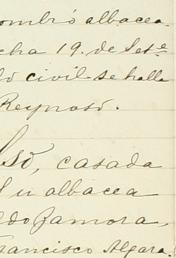 nombró albacea
cha 19. de Sete
lo civil se halla
Reynoso.
só, casada
su albacea
do Zamora,
rancisco Algara.